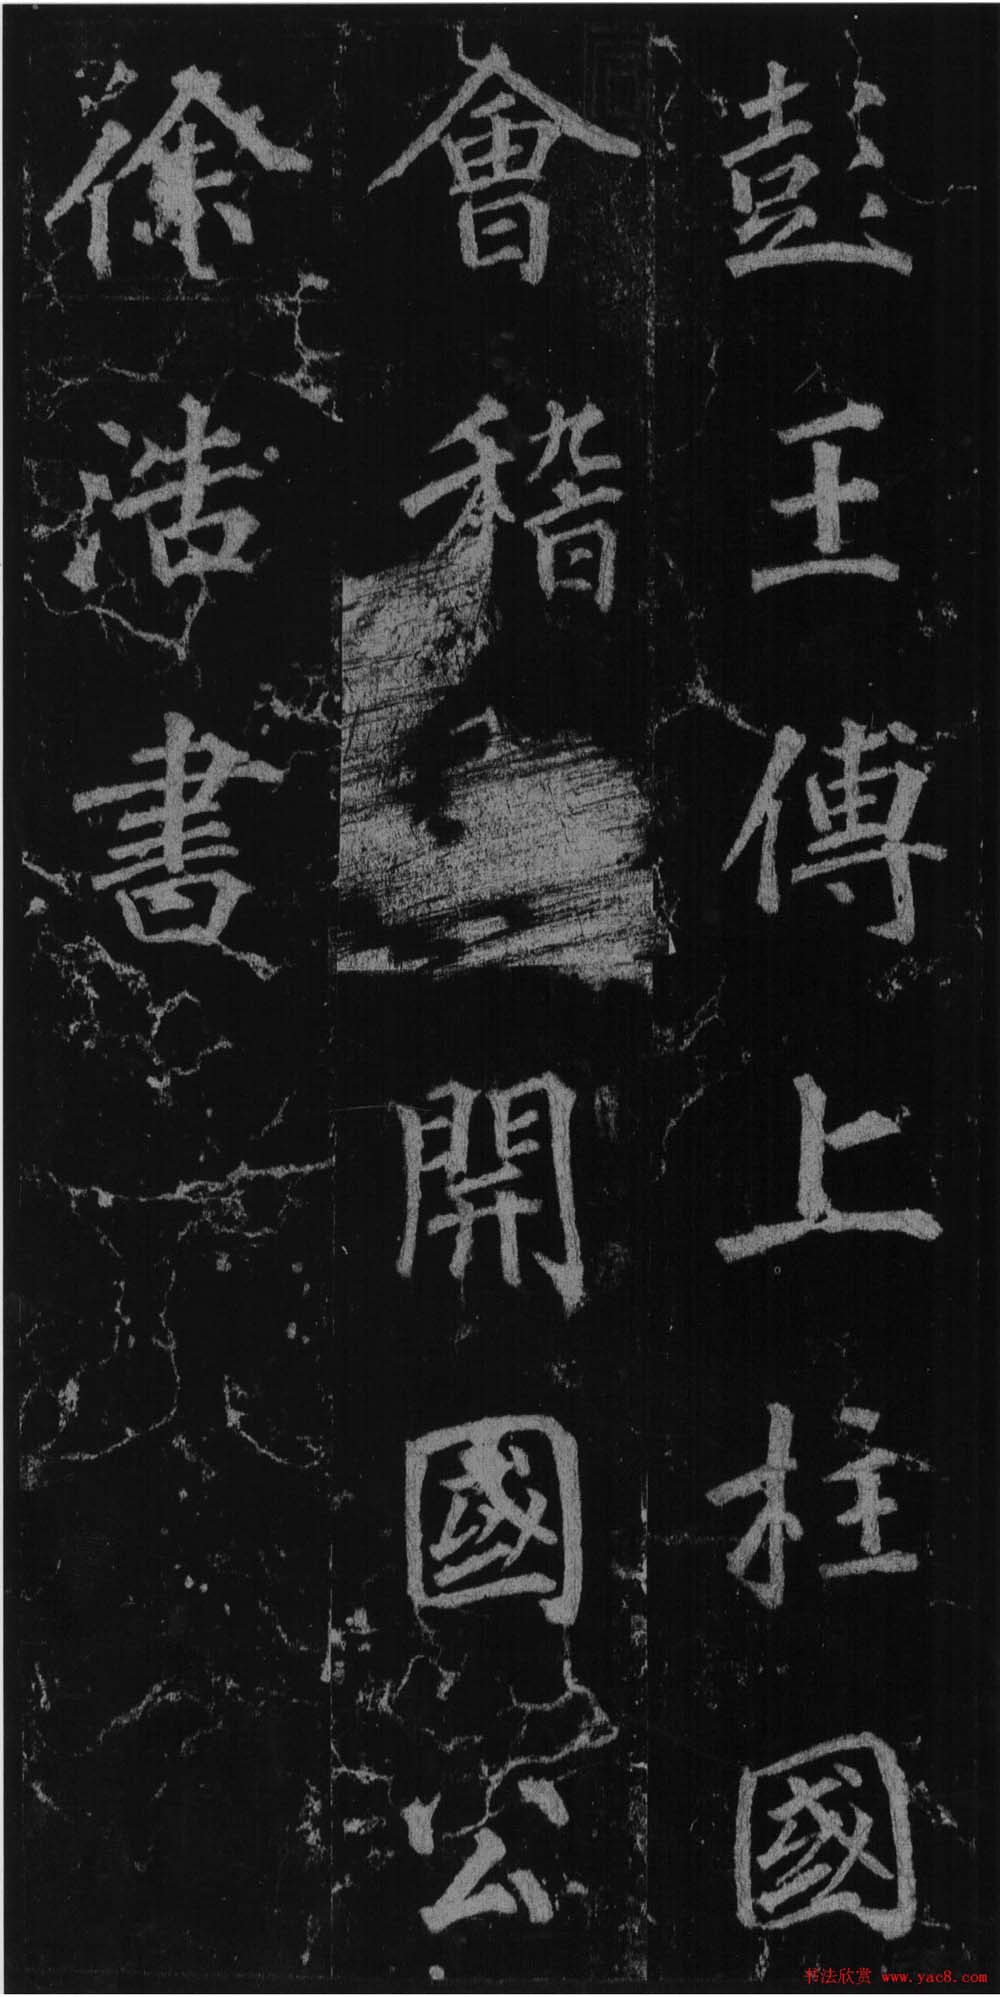 彭王傅上柱國
會稽開國公
徐浩書
书法欣赏 www.yac8.com